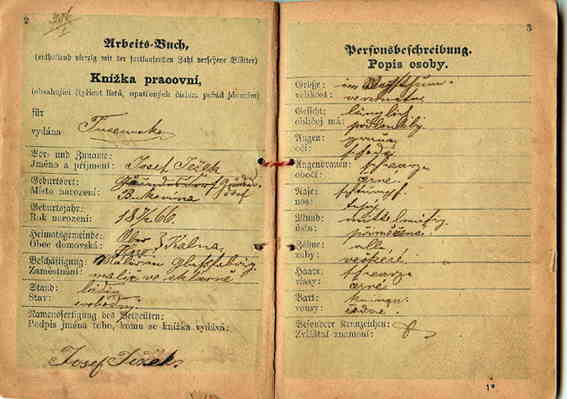 2
Arbeits-Buch,
(enthaltend vierzig mit der fortlaufenden Zahl versehene Blätter)
Knížka pracovní,
(obsahující čtyřicet listů, opatřených číslem pořád jdoucím)
für
vydána
Vor- und Zuname:
Jméno a příjmení: Josef Ježek
Geburtsort:
Místo narození: Bukovina
Geburtsjahr:
Rok narození: 1866
Heimatsgemeinde:
Obec domovská: Kalna
Beschäftigung:
Zaměstnání: malíř ve sklárně
Stand: ledig
Stav: svobodný
Namensfertigung des Betheilten:
Podpis jména toho, komu se knížka vydává:
Josef Ježek
3
Personsbeschreibung.
Popis osoby.
Größe:
velikost:
Gesicht: länglich
obličej má: podlouhlý
Augen:
oči:
Augenbrauen: schwarze
obočí: černé
Nase: stumpf
nos: tupý
Mund: mittelmäßig
ústa: přiměřená
Zähne: alle
zuby: veškeré
Haare: schwarze
vlasy: černé
Bart:
vousy: žádné
Besondere Kennzeichen:
Zvláštní znamení:
1*